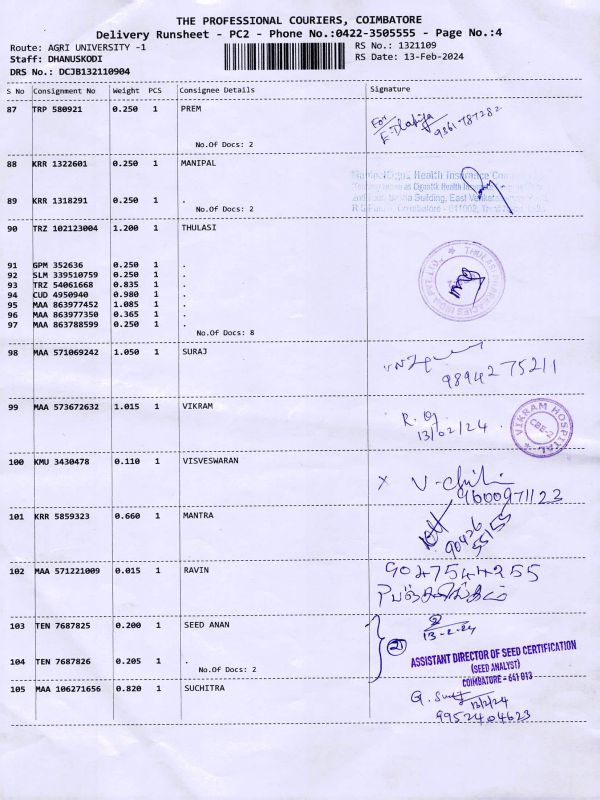 THE PROFESSIONAL COURIERS, COIMBATORE
Delivery Runsheet - PC2 - Phone No.:0422-3505555 - Page No.:4
Route: AGRI UNIVERSITY -1 RS No.: 1321109
Staff: DHANUSKODI RS Date: 13-Feb-2024
DRS No.: DCJB132110904
S No Consignment No Weight PCS Consignee Details Signature
87 TRP 580921 0.250 1 PREM
For
9361787282
No.Of Docs: 2
88 KRR 1322601 0.250 1 MANIPAL
Health Insurance
89 KRR 1318291 0.250 1 .
No.Of Docs: 2
90 TRZ 102123004 1.200 1 THULASI
91 GPM 352636 0.250 1 .
92 SLM 339510759 0.250 1 .
93 TRZ 54061668 0.835 1 .
94 CUD 4950940 0.980 1 .
95 MAA 863977452 1.085 1 .
96 MAA 863977350 0.365 1 .
97 MAA 863788599 0.250 1 .
No.Of Docs: 8
THULASI PHARMACIES INDIA PVT. LTD.
98 MAA 571069242 1.050 1 SURAJ
9894275211
99 MAA 573672632 1.015 1 VIKRAM
13/02/24
VIKRAM HOSPITAL
CBE-2
100 KMU 3430478 0.110 1 VISVESWARAN
9600971123
101 KRR 5859323 0.660 1 MANTRA
90436
55155
102 MAA 571221009 0.015 1 RAVIN
9047544255
103 TEN 7687825 0.200 1 SEED ANAN
2
13-2-24
ASSISTANT DIRECTOR OF SEED CERTIFICATION
(SEED ANALYST)
COIMBATORE - 641 013
104 TEN 7687826 0.205 1 .
No.Of Docs: 2
105 MAA 106271656 0.820 1 SUCHITRA
13/2/24
9952404623